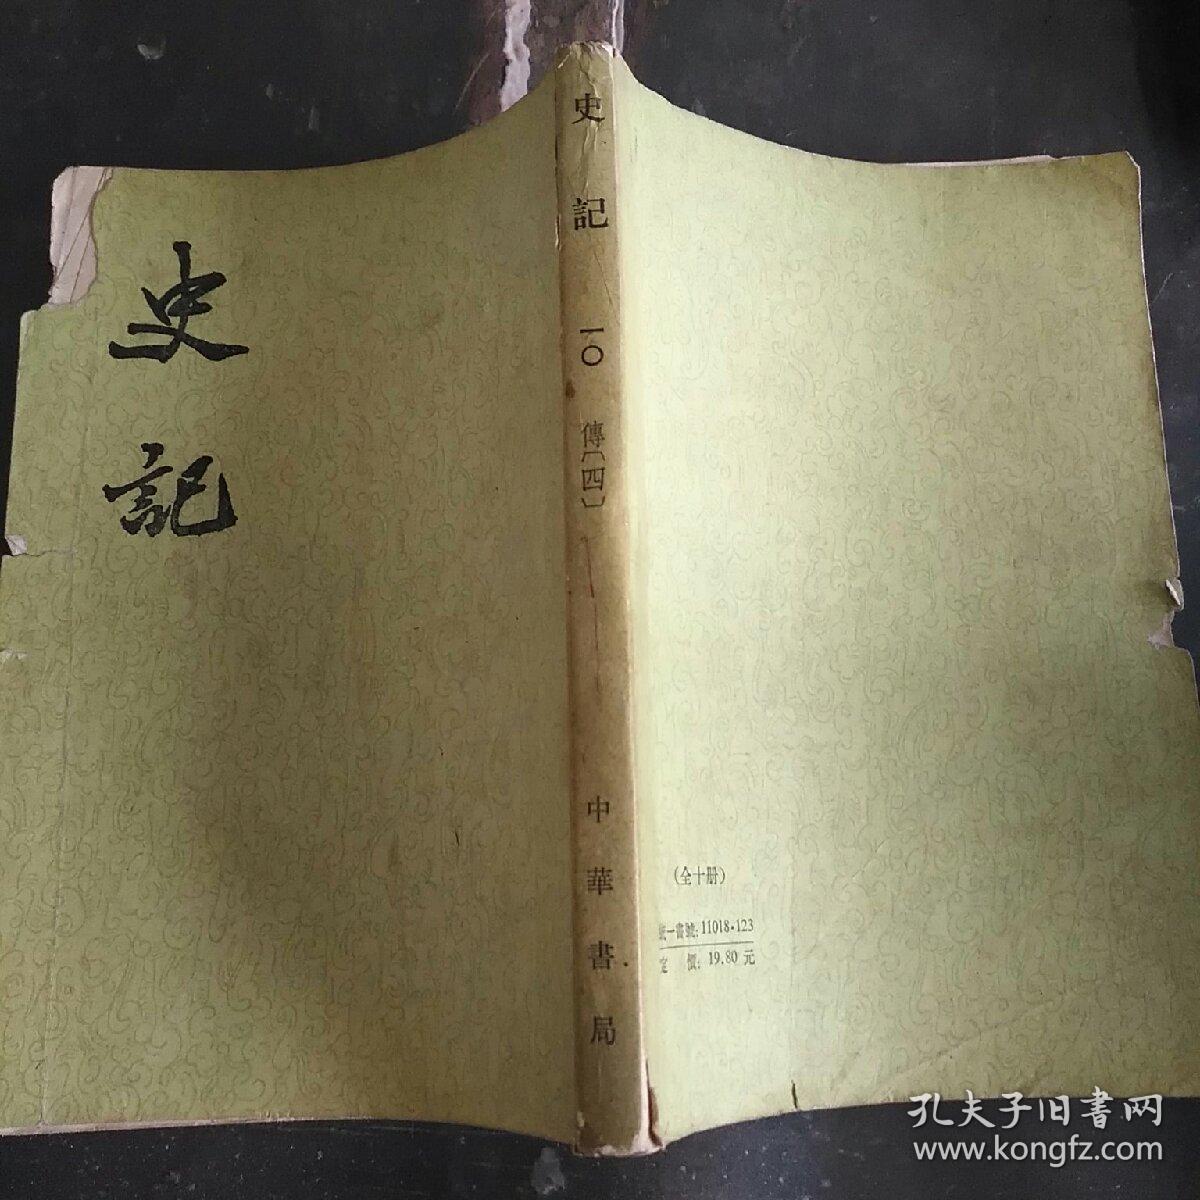 史記
史記 一〇 傳〔四〕 中華書局
(全十册)
統一書號:11018·123
定 價:19.80元
孔夫子旧書网
www.kongfz.com